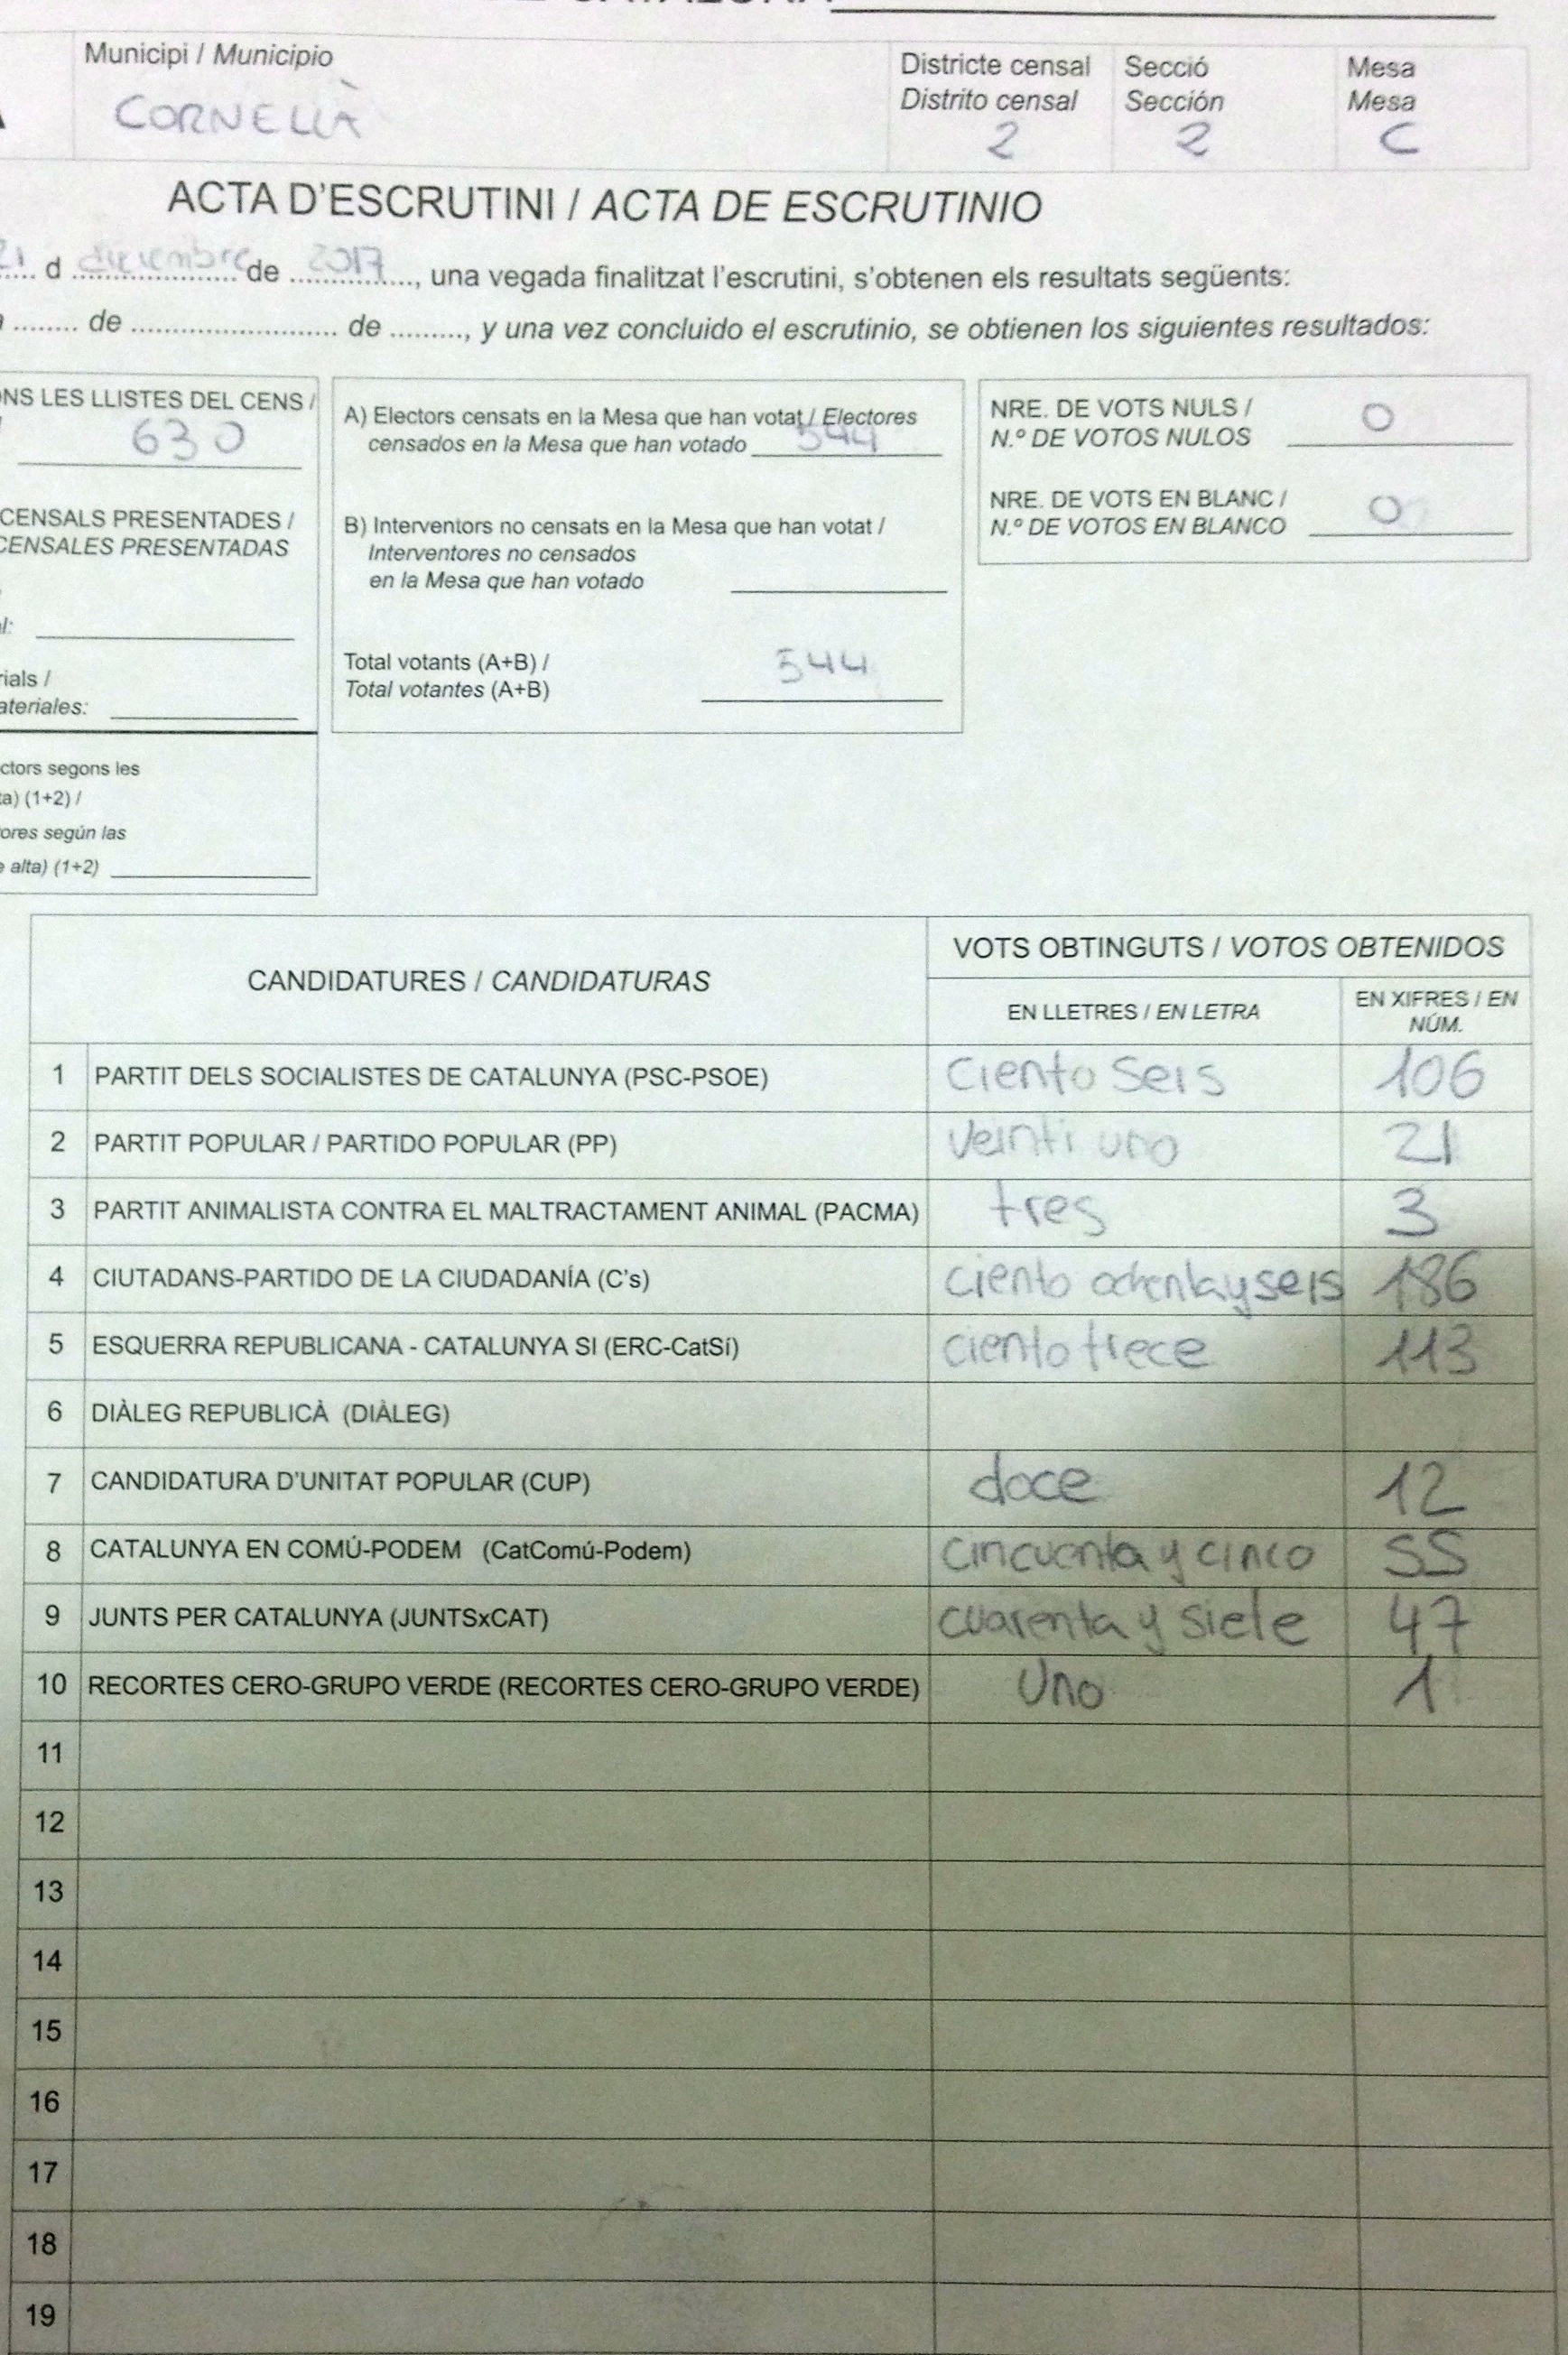 Municipi / Municipio
CORNELLÀ
Districte censal
Distrito censal
2
Secció
Sección
2
Mesa
Mesa
C
ACTA D'ESCRUTINI / ACTA DE ESCRUTINIO
21 d diciembre de 2017, una vegada finalitzat l'escrutini, s'obtenen els resultats següents:
........ de ........................ de ........., y una vez concluido el escrutinio, se obtienen los siguientes resultados:
LES LLISTES DEL CENS /
630
CENSALS PRESENTADES /
CENSALES PRESENTADAS
segons les
(1+2) /
según las
alta) (1+2)
A) Electors censats en la Mesa que han votat / Electores
censados en la Mesa que han votado 544
B) Interventors no censats en la Mesa que han votat /
Interventores no censados
en la Mesa que han votado
Total votants (A+B) /
Total votantes (A+B)
544
NRE. DE VOTS NULS /
N.º DE VOTOS NULOS
0
NRE. DE VOTS EN BLANC /
N.º DE VOTOS EN BLANCO
0
CANDIDATURES / CANDIDATURAS
VOTS OBTINGUTS / VOTOS OBTENIDOS
EN LLETRES / EN LETRA
EN XIFRES / EN
NÚM.
1 PARTIT DELS SOCIALISTES DE CATALUNYA (PSC-PSOE) Ciento Seis 106
2 PARTIT POPULAR / PARTIDO POPULAR (PP) Veinti uno 21
3 PARTIT ANIMALISTA CONTRA EL MALTRACTAMENT ANIMAL (PACMA) tres 3
4 CIUTADANS-PARTIDO DE LA CIUDADANÍA (C's) ciento ochenta y seis 186
5 ESQUERRA REPUBLICANA - CATALUNYA SI (ERC-CatSí) ciento trece 113
6 DIÀLEG REPUBLICÀ (DIÀLEG)
7 CANDIDATURA D'UNITAT POPULAR (CUP) doce 12
8 CATALUNYA EN COMÚ-PODEM (CatComú-Podem) cincuenta y cinco 55
9 JUNTS PER CATALUNYA (JUNTSxCAT) cuarenta y siete 47
10 RECORTES CERO-GRUPO VERDE (RECORTES CERO-GRUPO VERDE) Uno 1
11
12
13
14
15
16
17
18
19